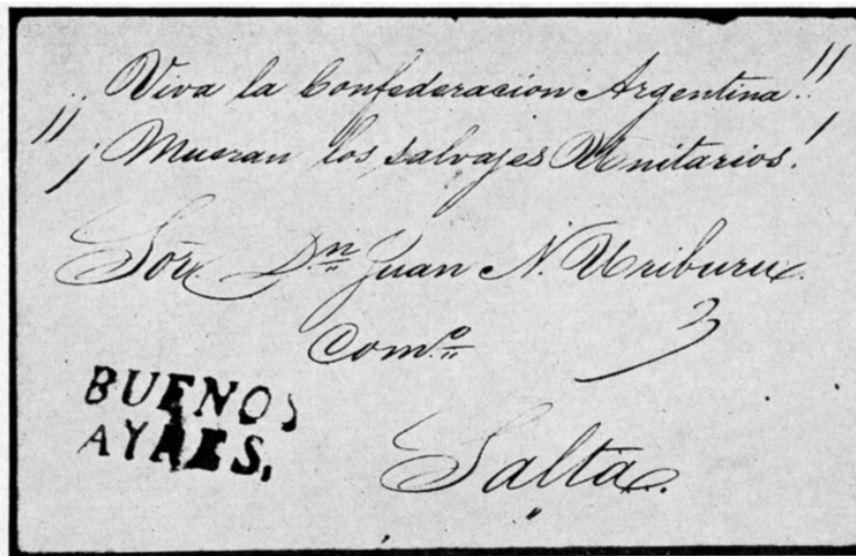 ¡Viva la Confederacion Argentina!"
"¡Mueran los salvajes Unitarios!
Sor. Dn Juan N. Uriburu.
3
Como
BUENOS
AYRES.
Salta.